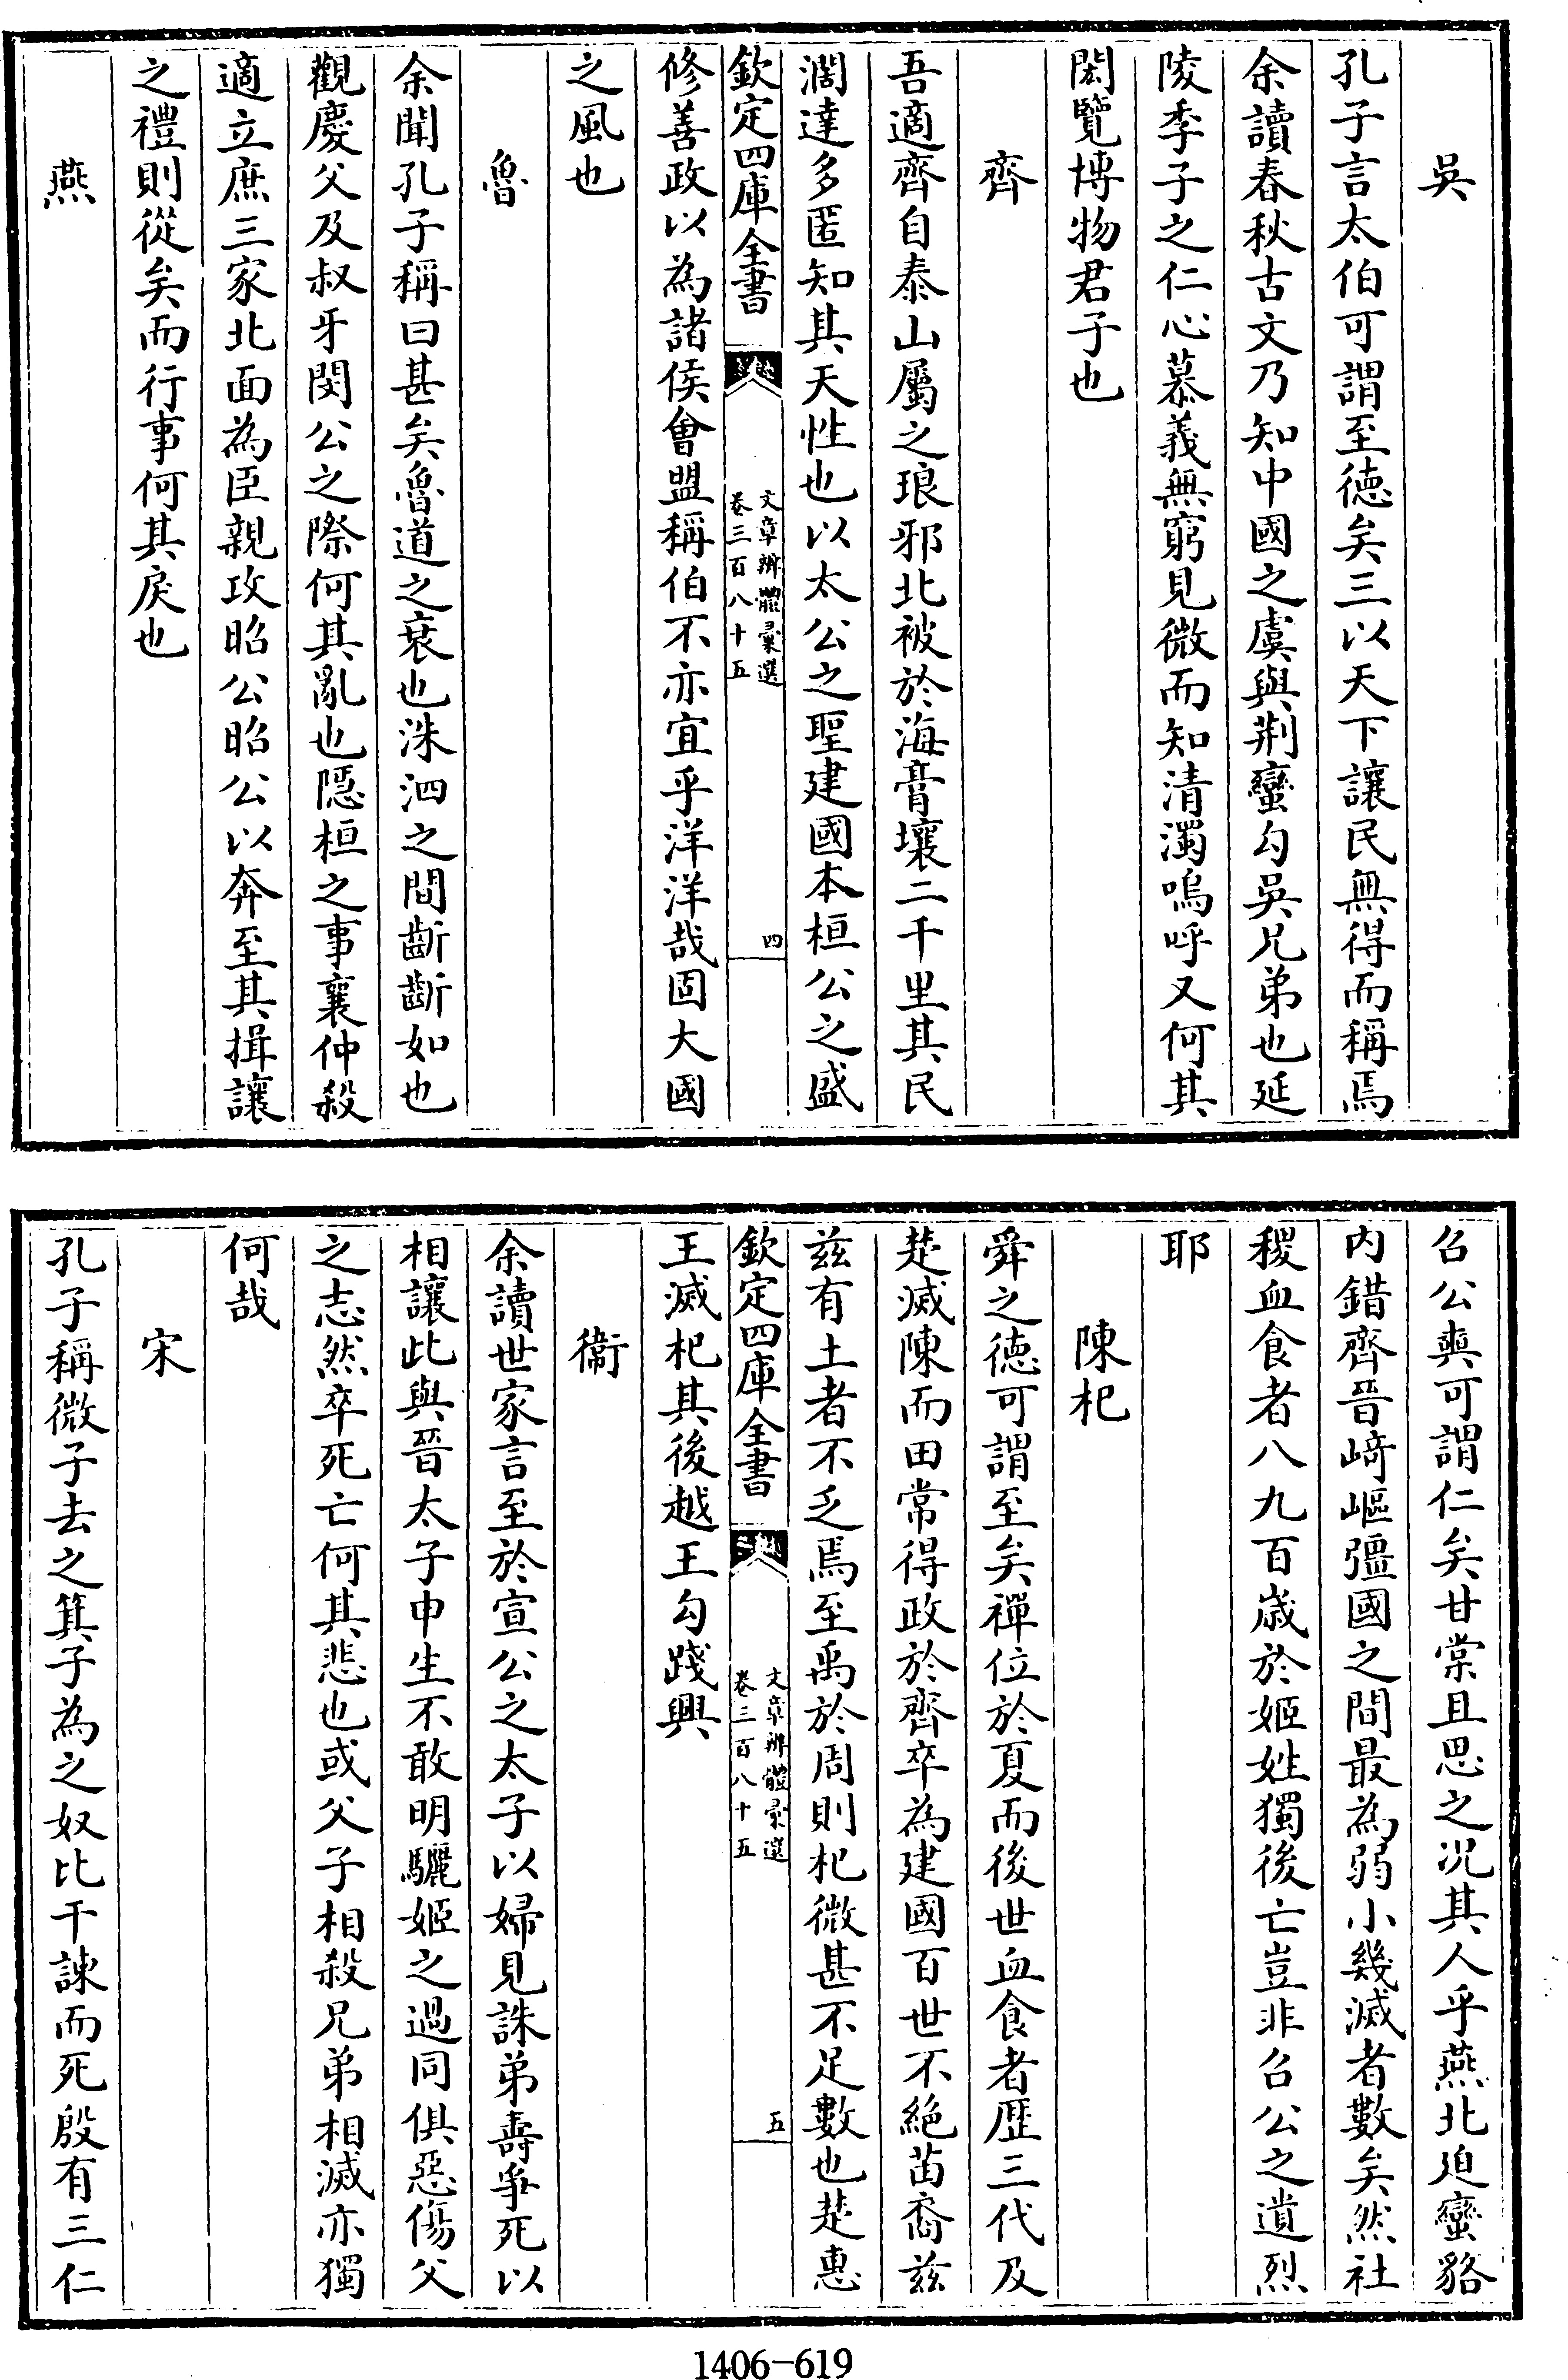 吳
孔子言太伯可謂至德矣三以天下讓民無得而稱焉
余讀春秋古文乃知中國之虞與荆蠻勾吳兄弟也延
陵季子之仁心慕義無窮見微而知清濁嗚呼又何其
閎覽博物君子也
齊
吾適齊自泰山屬之琅邪北被於海膏壤二千里其民
濶達多匿知其天性也以太公之聖建國本桓公之盛
欽定四庫全書
文章辨體彚選
卷三百八十五
四
修善政以為諸侯會盟稱伯不亦宜乎洋洋哉固大國
之風也
魯
余聞孔子稱曰甚矣魯道之衰也洙泗之間齗齗如也
觀慶父及叔牙閔公之際何其亂也隱桓之事襄仲殺
適立庶三家北面為臣親攻昭公昭公以奔至其揖讓
之禮則從矣而行事何其戾也
燕
召公奭可謂仁矣甘棠且思之况其人乎燕北迫蠻貉
内錯齊晉崎嶇彊國之間最為弱小幾滅者數矣然社
稷血食者八九百歲於姬姓獨後亡豈非召公之遺烈
耶
陳杞
舜之德可謂至矣禪位於夏而後世血食者歷三代及
楚滅陳而田常得政於齊卒為建國百世不絶苗裔兹
兹有土者不乏焉至禹於周則杞微甚不足數也楚惠
欽定四庫全書
文章辨體彚選
卷三百八十五
五
王滅杞其後越王勾踐興
衞
余讀世家言至於宣公之太子以婦見誅弟壽爭死以
相讓此與晉太子申生不敢明驪姬之過同俱惡傷父
之志然卒死亡何其悲也或父子相殺兄弟相滅亦獨
何哉
宋
孔子稱微子去之箕子為之奴比干諫而死殷有三仁
1406-619